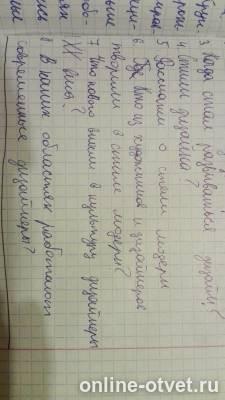 3 Когда стал развиваться дизайн?
4. Стили дизайна?
5 Расскажи о стиле модерн
6 Где Кто из художников и дизайнеров
творили в стиле модерн?
7 Что нового внесли в культуру дизайнеры
XX века?
8 В каких областях работают
современные дизайнеры?
online-otvet.ru